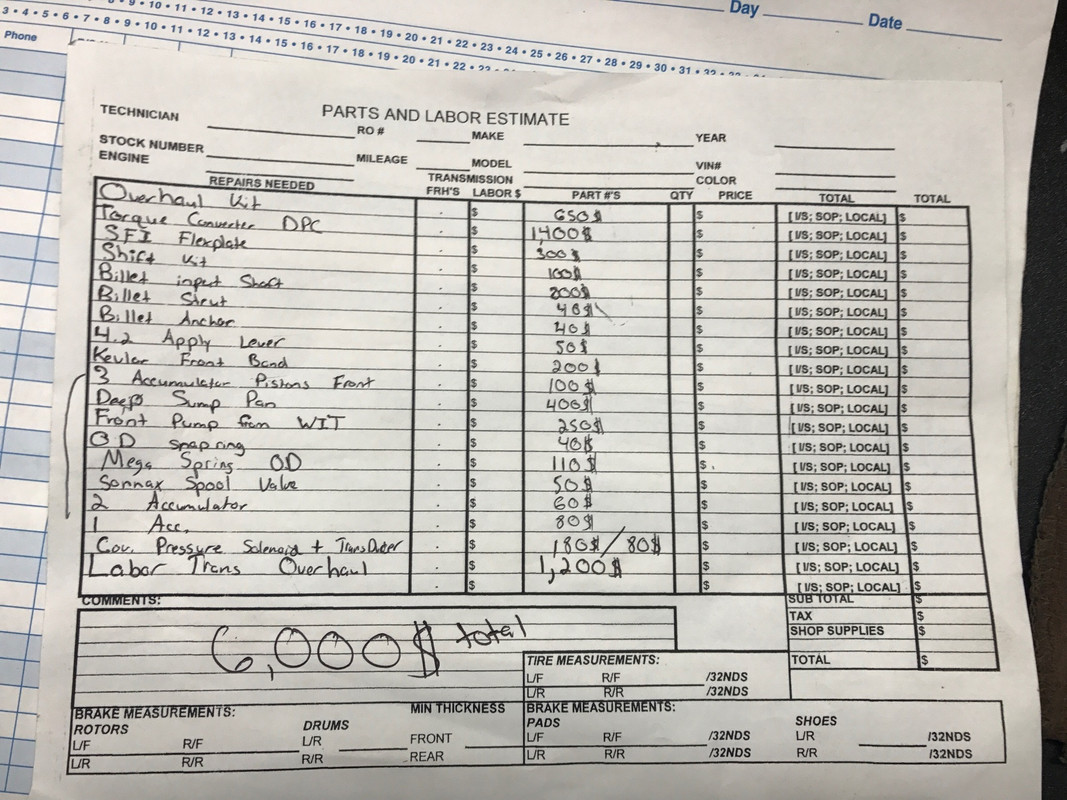 Day Date
9 • 10 • 11 • 12 • 13 • 14 • 15 • 16 • 17 • 18 • 19 • 20 • 21 • 22 • 23 • 24 • 25 • 26 • 27 • 28 • 29 • 30 • 31
3 • 4 • 5 • 6 • 7 • 8 • 9 • 10 • 11 • 12 • 13 • 14 • 15 • 16 • 17 • 18 • 19 • 20 • 21 • 22
Phone
PARTS AND LABOR ESTIMATE
TECHNICIAN RO # MAKE YEAR
STOCK NUMBER MILEAGE MODEL VIN#
ENGINE TRANSMISSION COLOR
REPAIRS NEEDED FRH'S LABOR $ PART #'S QTY PRICE TOTAL TOTAL
Overhaul Kit . $ 650$ $ [ I/S; SOP; LOCAL] $
Torque Converter DPC . $ 1,400$ $ [ I/S; SOP; LOCAL] $
SFI Flexplate . $ 300$ $ [ I/S; SOP; LOCAL] $
Shift Kit . $ 100$ $ [ I/S; SOP; LOCAL] $
Billet input Shaft . $ 200$ $ [ I/S; SOP; LOCAL] $
Billet Strut . $ 40$ $ [ I/S; SOP; LOCAL] $
Billet Anchor . $ 40$ $ [ I/S; SOP; LOCAL] $
4.2 Apply Lever . $ 50$ $ [ I/S; SOP; LOCAL] $
Kevlar Front Band . $ 200$ $ [ I/S; SOP; LOCAL] $
3 Accumulator Pistons Front . $ 100$ $ [ I/S; SOP; LOCAL] $
Deep Sump Pan . $ 400$ $ [ I/S; SOP; LOCAL] $
Front Pump from WIT . $ 250$ $ [ I/S; SOP; LOCAL] $
OD snap ring . $ 40$ $ [ I/S; SOP; LOCAL] $
Mega Spring OD . $ 110$ $ . [ I/S; SOP; LOCAL] $
Sonnax Spool Valve . $ 50$ $ [ I/S; SOP; LOCAL] $
2 Accumulator . $ 60$ $ [ I/S; SOP; LOCAL] $
1 Acc. . $ 80$ $ [ I/S; SOP; LOCAL] $
Gov. Pressure Solenoid + TransDucer . $ 180$/80$ $ [ I/S; SOP; LOCAL] $
Labor Trans Overhaul . $ 1,200$ $ [ I/S; SOP; LOCAL] $
. $ $ [ I/S; SOP; LOCAL] $
COMMENTS: SUB TOTAL $
TAX $
6,000$ total SHOP SUPPLIES $
TIRE MEASUREMENTS: TOTAL $
L/F R/F /32NDS
L/R R/R /32NDS
BRAKE MEASUREMENTS: MIN THICKNESS BRAKE MEASUREMENTS:
ROTORS DRUMS PADS SHOES
L/F R/F L/R FRONT L/F R/F /32NDS L/R /32NDS
L/R R/R R/R REAR L/R R/R /32NDS R/R /32NDS